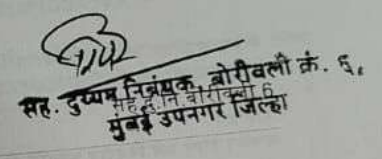 सह. दुय्यम निबंधक, बोरीवली क्रं. ६,
सह दु.नि बोरीवली 6
मुंबई उपनगर जिल्हा